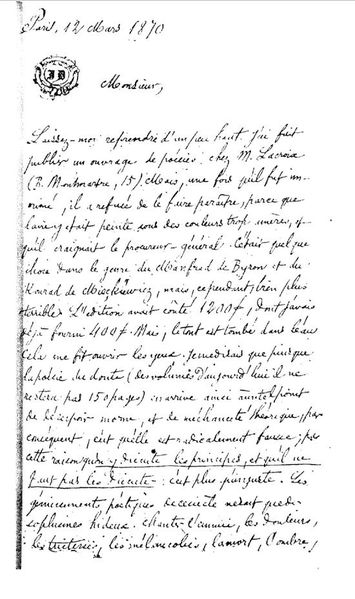 Paris, 12 Mars 1870
JD
Monsieur,
Laissez-moi reprendre d'un peu haut. J'ai fait
publier un ouvrage de poésies chez M. Lacroix
(B. Montmartre, 15). Mais, une fois qu'il fut im-
primé, il a refusé de le faire paraître, parce que
la vie y était peinte sous des couleurs trop amères, et
qu'il craignait le procureur-général. C'était quelque
chose dans le genre du Manfred de Byron et du
Konrad de Mickiéwicz, mais, cependant, bien plus
terrible. L'édition avait coûté 1200 f, dont j'avais
déjà fourni 400 f. Mais, le tout est tombé dans l'eau
Cela me fit ouvrir les yeux. Je me disais que puisque
la poésie du doute (des volumes d'aujourd'hui il ne
restera pas 150 pages) en arrive ainsi à un tel point
de désespoir morne, et de méchanceté théorique, par
conséquent, c'est qu'elle est radicalement fausse; par
cette raison qu'on y discute les principes, et qu'il ne
faut pas les discuter: c'est plus qu'injuste. Les
gémissements poétiques de ce siècle ne sont que des
sophismes hideux. Chanter l'ennui, les douleurs,
les tristesses, les mélancolies, la mort, l'ombre,